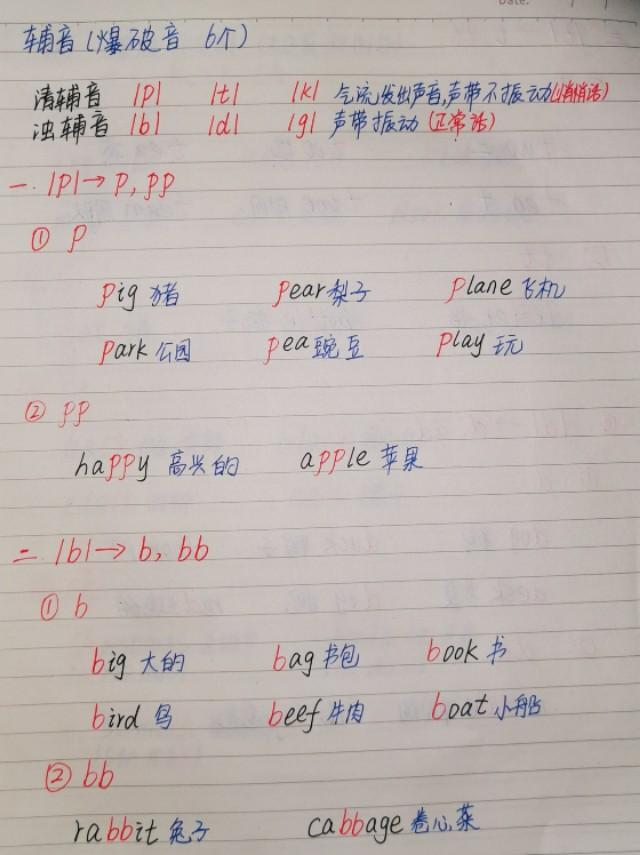 Date:
辅音(爆破音 6个)
清辅音 |p| |t| |k| 气流发出声音,声带不振动(悄悄话)
浊辅音 |b| |d| |g| 声带振动(正常话)
一. |p|→p, pp
① p
pig 猪 pear 梨子 plane 飞机
park 公园 pea 豌豆 play 玩
② pp
happy 高兴的 apple 苹果
二. |b|→b, bb
① b
big 大的 bag 书包 book 书
bird 鸟 beef 牛肉 boat 小船
② bb
rabbit 兔子 cabbage 卷心菜